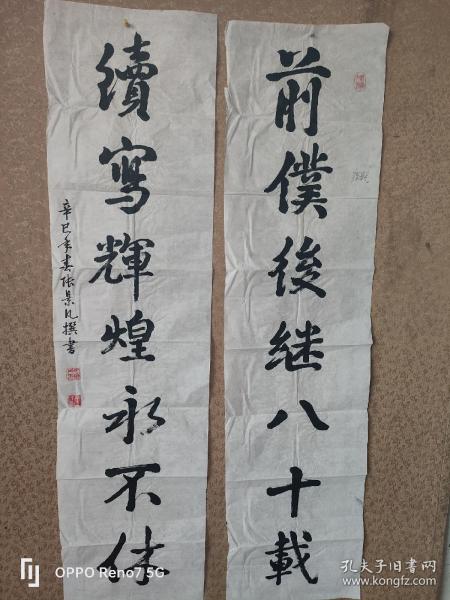 前僕後継八十載
續寫輝煌永不休
辛巳年春張景凡撰書
OPPO Reno7 5G
孔夫子旧书网
www.kongfz.com